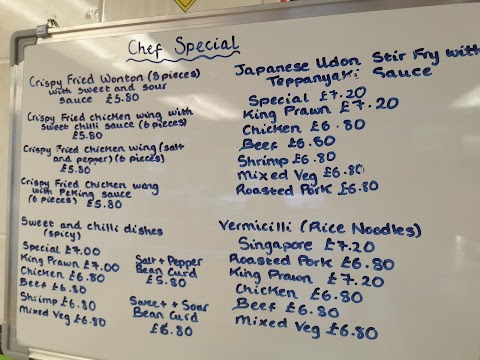 Chef Special
Crispy Fried Wonton (8 pieces)
with sweet and sour
sauce £5.80
Crispy Fried chicken wing with
sweet chilli sauce (6 pieces)
£5.80
Crispy Fried Chicken wing (salt
and pepper) (6 pieces)
£5.80
Crispy Fried Chicken wing
with Peking sauce
(6 pieces) £5.80
Sweet and chilli dishes
(spicy)
Special £7.00
King Prawn £7.00
Chicken £6.80
Beef £6.80
Shrimp £6.80
Mixed Veg £6.80
Salt + Pepper
Bean Curd
£5.80
Sweet + Sour
Bean Curd
£6.80
Japanese Udon Stir Fry with
Teppanyaki Sauce
Special £7.20
King Prawn £7.20
Chicken £6.80
Beef £6.80
Shrimp £6.80
Mixed Veg £6.80
Roasted Pork £6.80
Vermicilli (Rice Noodles)
Singapore £7.20
Roasted Pork £6.80
King Prawn £7.20
Chicken £6.80
Beef £6.80
Mixed Veg £6.80